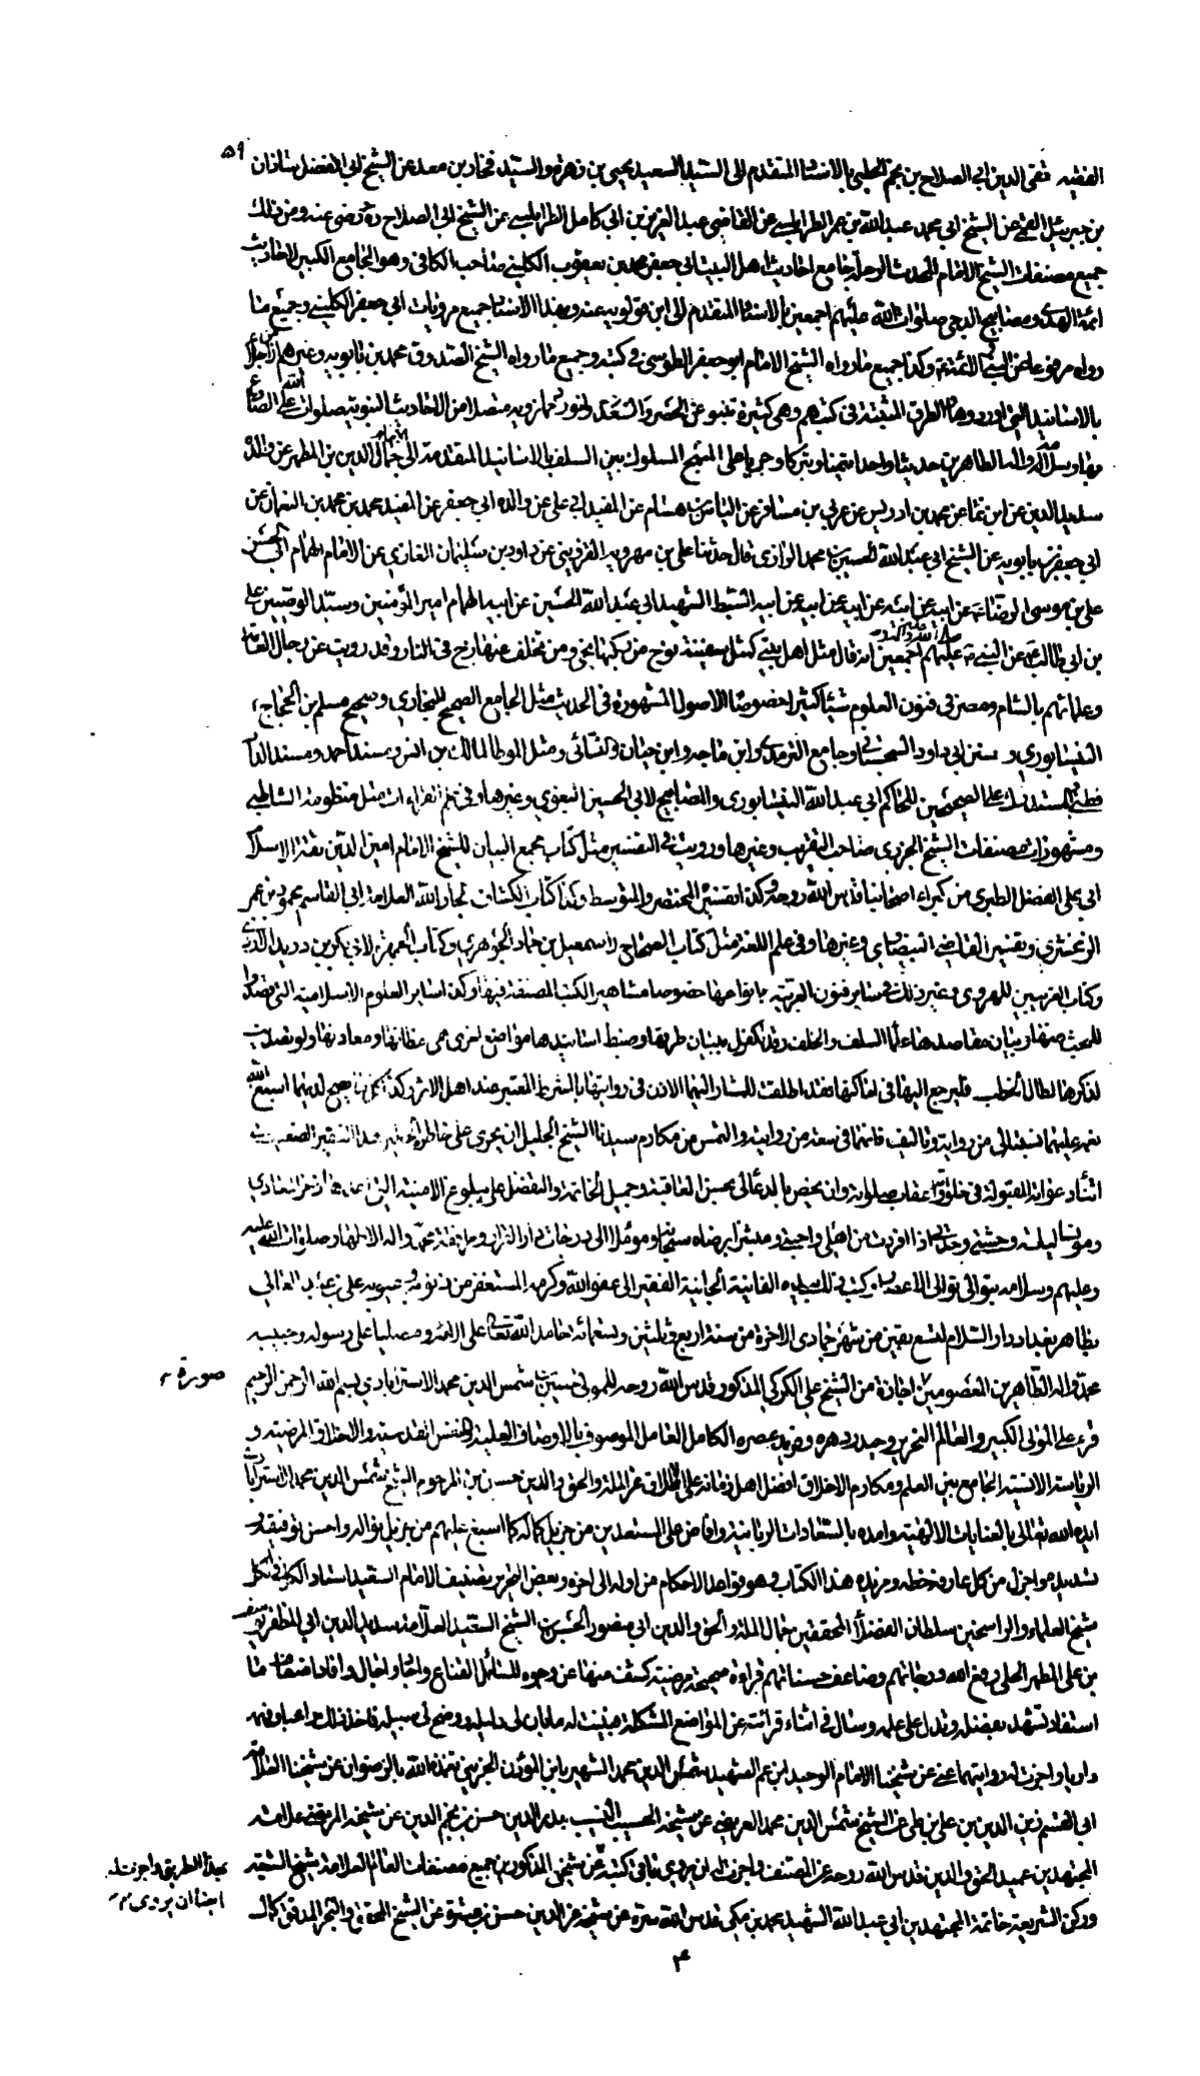 ٥٩
الفقيه تقي الدين ابي الصلاح بن نجم الحلبي بالاسناد المتقدم الى السيد السعيد يحيى بن زهرة والسيد فخار بن معد عن الشيخ ابي الفضل شاذان
بن جبرئيل القمي عن الشيخ ابي محمد عبد الله بن عمر الطرابلسي عن القاضي عبد العزيز بن ابي كامل الطرابلسي عن الشيخ ابي الصلاح ره رضي عنه ومن ذلك
جميع مصنفات الشيخ الامام المحدث الرحلة جامع احاديث اهل البيت ابي جعفر محمد بن يعقوب الكليني صاحب الكافي وهو الجامع الكبير لاحاديث
ائمة الهدى ومصابيح الدجى صلوات الله عليهم اجمعين بالاسناد المتقدم الى ابن قولويه عنه وبهذا الاسناد جميع مرويات ابي جعفر الكليني وجميع ما
رواه مرفوعا عن الائمة وكذا جميع ما رواه الشيخ الامام ابو جعفر الطوسي في كتبه وجميع ما رواه الشيخ الصدوق محمد بن بابويه وغيرهم
بالاسانيد التي اوردوها والطرق المثبتة في كتبهم وهي كثيرة تنبو عن الحصر والعدد ولنورد مما نرويه متصلا من الاحاديث النبوية صلوات الله على
حديثا واحدا تيمنا وتبركا وجريا على المنهج المسلوك بين السلف بالاسانيد المتقدمة الى جمال الدين بن المطهر عن والده
سديد الدين عن ابن نما عن محمد بن ادريس عن عربي بن مسافر عن الياس بن هشام عن المفيد ابي علي عن والده ابي جعفر عن المفيد محمد بن محمد بن النعمان عن
ابي جعفر بن بابويه عن الشيخ ابي عبد الله الحسين بن محمد الرازي قال حدثنا علي بن مهرويه القزويني عن داود بن سليمان الغازي عن الامام الهمام ابي الحسن
علي بن موسى الرضا عن ابيه عن ابيه عن ابيه عن ابيه عن ابيه السبط الشهيد ابي عبد الله الحسين عن ابيه الهمام امير المؤمنين وسيد الوصيين علي
بن ابي طالب عن النبي صلى الله عليه وآله وعليهم اجمعين انه قال مثل اهل بيتي كمثل سفينة نوح من ركبها نجى ومن تخلف عنها زخ في النار وقد رويت عن رجال العامة
وعلمائهم بالشام ومصر في فنون العلوم شيئا كثيرا خصوصا الاصول المشهورة في الحديث مثل الجامع الصحيح للبخاري وصحيح مسلم بن الحجاج
النيشابوري وسنن ابي داود السجستاني وجامع الترمذي وابن ماجه وابن حبان والنسائي ومثل الموطا لمالك بن انس ومسند احمد ومسند الدار
قطني والمستدرك على الصحيحين للحاكم ابي عبد الله النيشابوري والمصابيح لابي الحسين البغوي وغيرها وفي علم القراءات مثل منظومة الشاطبي
ومشهورات مصنفات الشيخ الجزري صاحب التقريب وغيرها ورويت في التفسير مثل كتاب مجمع البيان للشيخ الامام امين الدين ثقة الاسلام
ابي علي الفضل الطبرسي من كبراء اصحابنا قدس الله روحه وكذا تفسيريه المختصر والمتوسط وكذا كتاب الكشاف لجار الله العلامة ابي القاسم محمود بن عمر
الزمخشري وتفسير القاضي البيضاوي وغيرها وفي علم اللغة مثل كتاب الصحاح لاسمعيل بن حماد الجوهري وكتاب الجمهرة لابي بكر بن دريد الازدي
وكتاب الغريبين للهروي وغير ذلك في ساير فنون العربية بانواعها خصوصا مشاهير الكتب المصنفة فيها وكذا ساير العلوم الاسلامية التي تصدوا
للبحث عنها وبيان مقاصدها علماء السلف والخلف وقد تكفل ببيان طرقها وضبط اسانيدها مواضع اخرى هي مظانها ومعادنها ولو تصديت
لذكرها لطال الخطب فليرجع اليها في اماكنها فقد اطلقت للمشار اليهما الاذن في روايتها بالشرط المعتبر عند اهل الاثر وكذا يصح لديهما اسبغ الله
نعمه عليهما نسبته الي من رواية وتاليف فانهما في سعة من روايته والتمس من مكارم سيدنا الشيخ الجليل ان يجري على خاطره هذا الفقير الضعيف
اثناء دعواته المقبولة في خلواته واعقاب صلواته وان يخص بالدعا لي بحسن العاقبة وجميل الخاتمة والتفضل علي ببلوغ الامنية التي اعدها ذخرا لمعادي
ومونسا ليلة وحشتي ووحدتي اذا افردت من اهلي واحبتي ومبشرا برضاه سبحانه وموئلا الى درجات دار القرار ومرافقة محمد واله الاطهار وصلوات الله عليه
وعليهم وسلامه يتوالى توالي الاعصار وكتب ذلك بيده الفانية الجانية الفقير الى عفو الله وكرمه المستغفر من ذنوبه وعيوبه علي بن عبد العالي
بظاهر بغداد دار السلام لتسع بقين من شهر جمادى الاخرة من سنة اربع وثلثين وتسعمائة حامدا لله تعالى على الائه ومصليا على رسوله وحبيبه
محمد واله الطاهرين المعصومين اجازة من الشيخ علي الكركي المذكور قدس الله روحه للمولى حسين بن شمس الدين محمد الاسترابادي بسم الله الرحمن الرحيم
صورة
قرء علي المولى الكبير والعالم النحرير وحيد دهره وفريد عصره الكامل الفاضل الموصوف بالاوصاف العلية والنفس القدسية والاخلاق المرضية و
الرياسة الانسية الجامع بين العلم ومكارم الاخلاق افضل اهل زمانه على الاطلاق عز الملة والحق والدين حسين بن المرحوم الشيخ شمس الدين محمد الاسترابادي
ايده الله تعالى بالعنايات الالهية وامده بالسعادات الربانية وافاض على المستعدين من جزيل كماله كما اسبغ عليهم من جزيل نواله واحسن توفيقه و
تسديده واجزل من كل عارفة حظه ومزيده هذا الكتاب وهو قواعد الاحكام من اوله الى اخره وبعض التحرير تصنيف الامام السعيد استاد الكل في الكل
شيخ العلماء والراسخين سلطان الفضلاء المحققين جمال الملة والحق والدين ابي منصور الحسن بن الشيخ السعيد العلامة سديد الدين ابي المظفر يوسف
بن علي المطهر الحلي رفع الله درجاتهم وضاعف حسناتهم قراءة صحيحة مرضية كشف منها عن وجوه المسائل القناع واجاد واجال وافاد اضعاف ما
استفاد تشهد بفضله وتدل على علمه وسال في اثناء قرائته عن المواضع المشكلة فبينت له ما بان لي دليله ووضح لي سبيله فاخذ ذلك واعيا وفهمه
داريا واجزت له روايتهما عني عن شيخنا الامام الوحيد ابن عم الشهيد شمس الدين محمد الشهير بابن المؤذن الجزيني تغمده الله بالرضوان عن شيخنا العلامة
ابي القسم زين الدين بن علي بن طي عن الشيخ شمس الدين محمد العريضي عن شيخه الحسيب النسيب بدر الدين حسن بن نجم الدين عن شيخه المرتضى علامة
المجتهدين عميد الحق والدين قدس الله روحه عن المصنف واجزت له ان يروي باقي كتبه عن شيخي المذكور بن جميع مصنفات العالم العلامة شيخ الشيعة
بهذا الطريق واجزت له
وركن الشريعة خاتمة المجتهدين ابي عبد الله الشهيد محمد بن مكي قدس الله سره عن شيخه عز الدين حسن بن عشرة عن الشيخ المحقق والحبر المدقق جمال
ايضا ان يروي